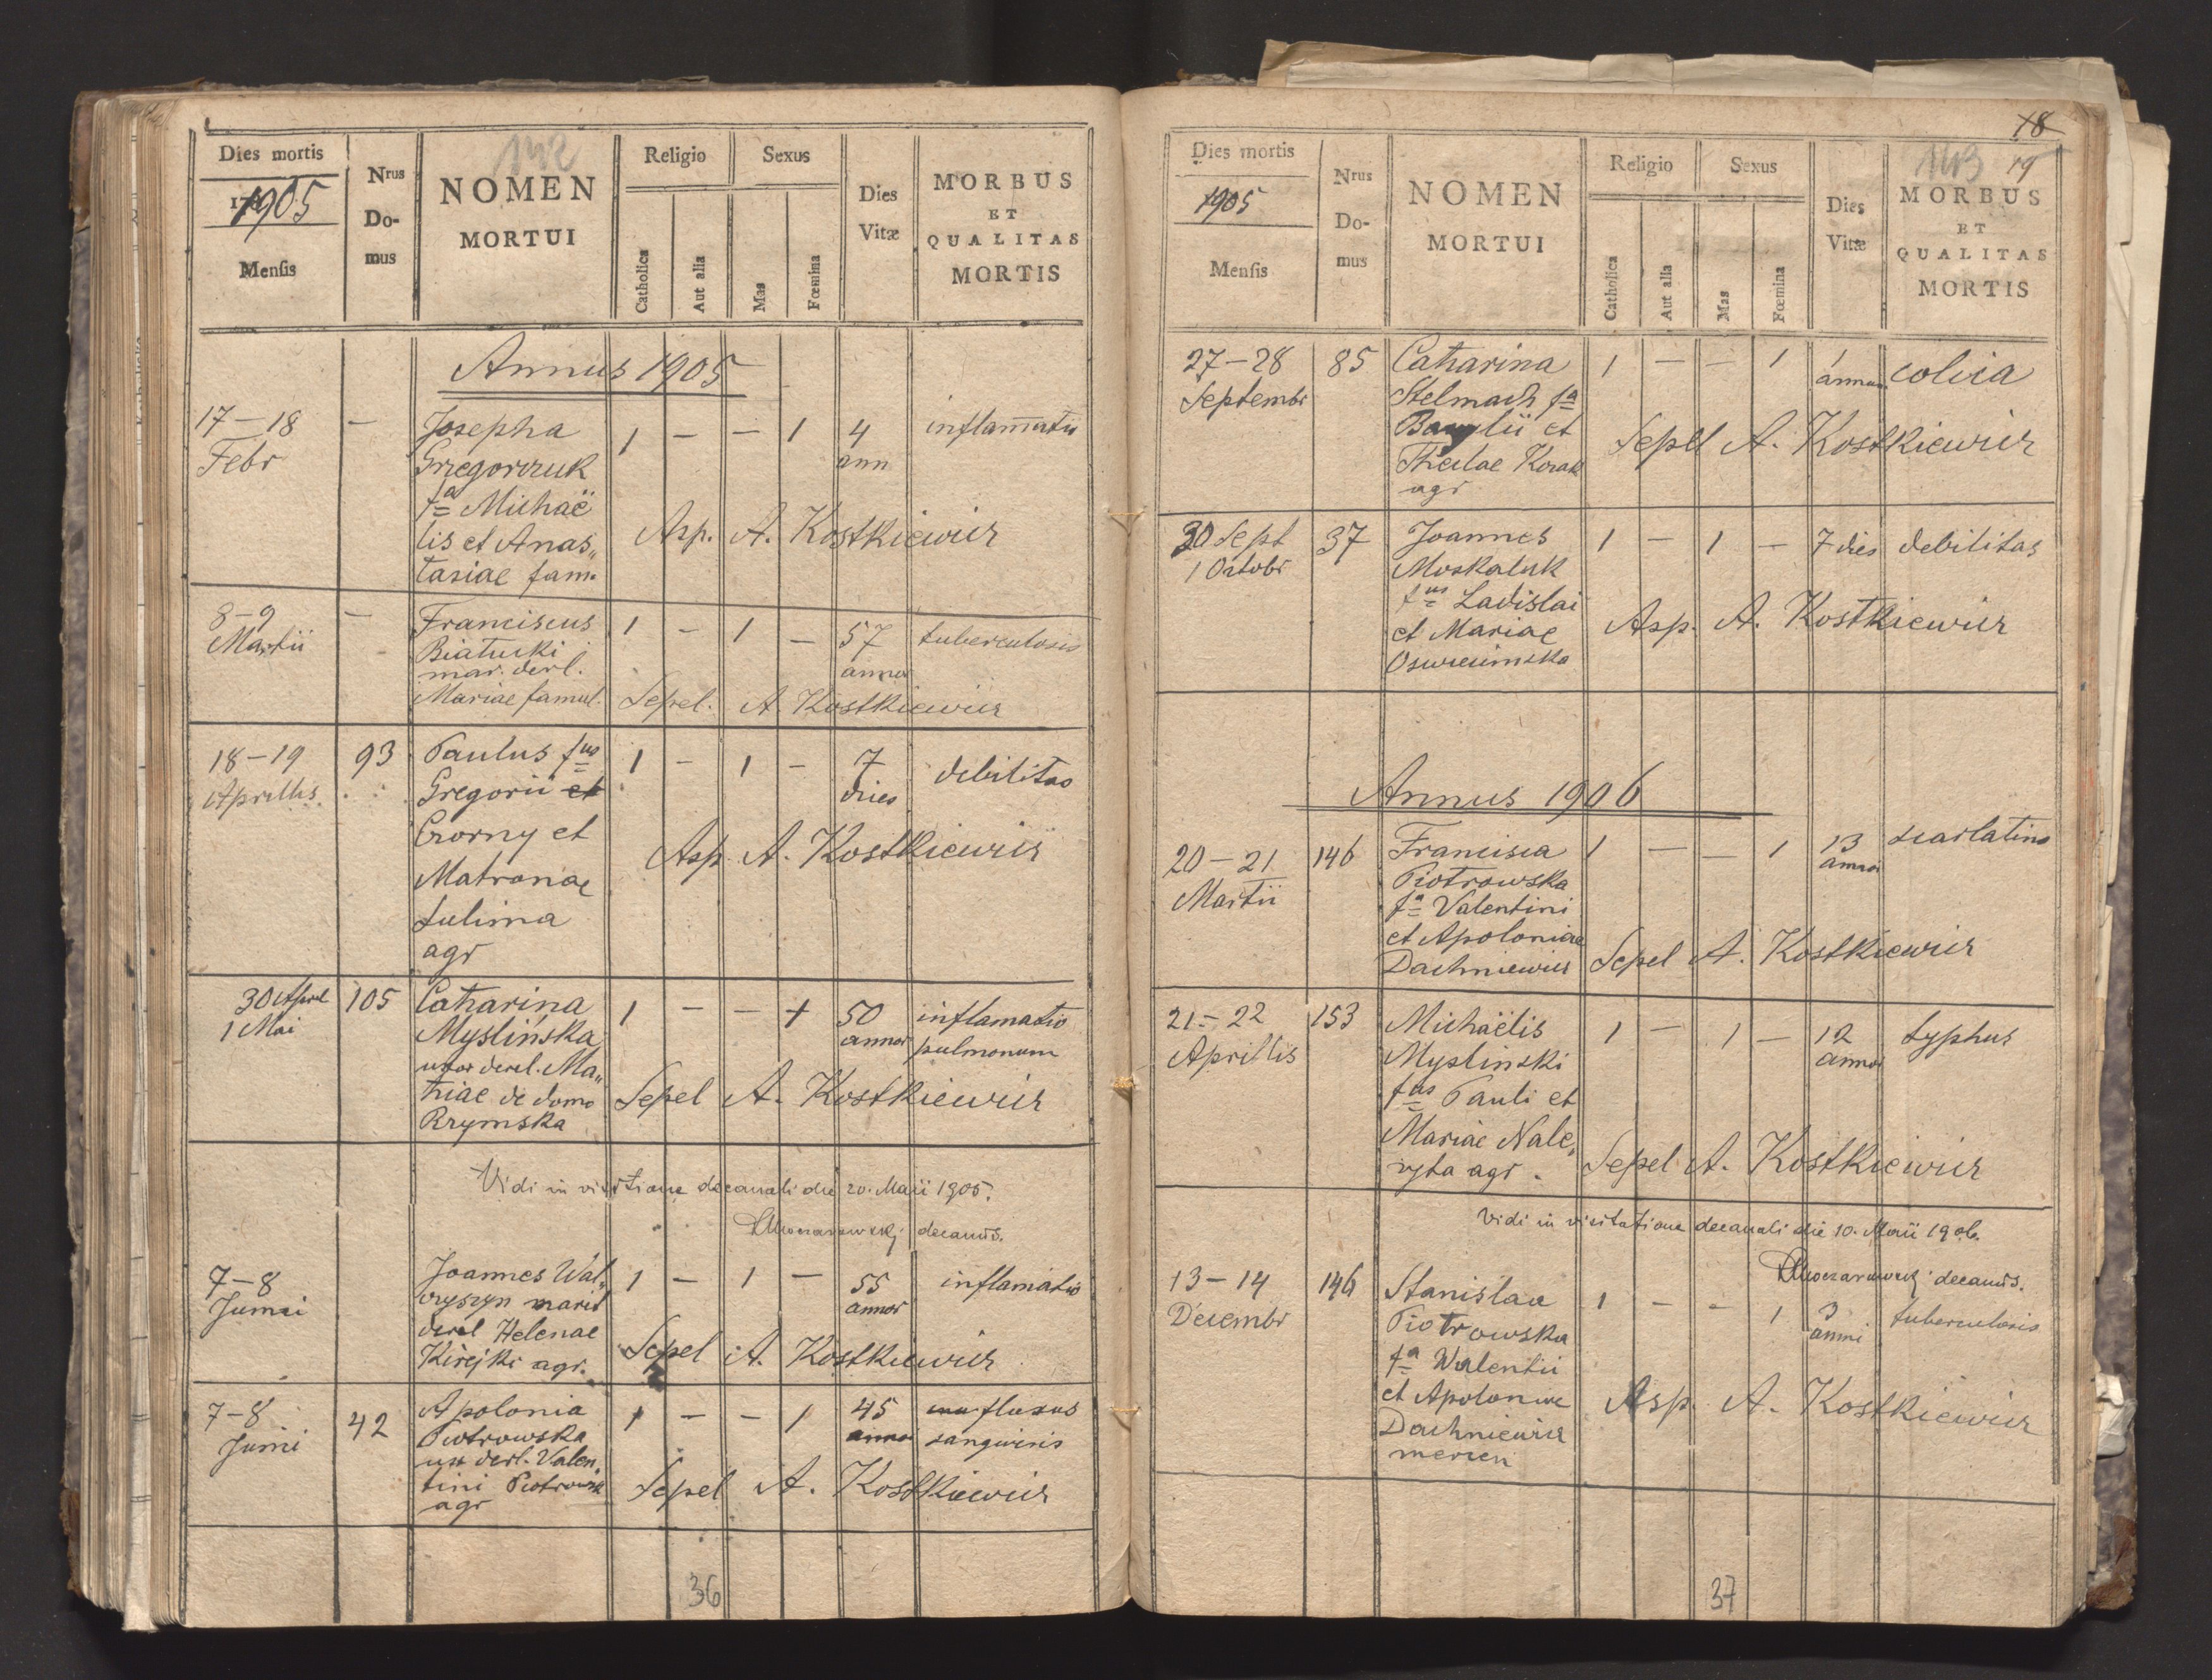 142
Dies mortis
1905
Mensis
Nrus
Do-
mus
NOMEN
MORTUI
Religio
Catholica
Aut alia
Sexus
Mas
Fœmina
Dies
Vitæ
MORBUS
ET
QUALITAS
MORTIS
Annus 1905
17-18 — Josepha 1 — — 1 4 inflam̄atio
Febr Grzegorczuk ann
fa Michaë
lis et Anas„ Asp. A. Kostkiewicz
tasiae fam.
8-9 — Franciscus 1 — 1 — 57 tuberculosis
Martii Białucki annor
mar. derel.
Mariae famul. Sepel. A. Kostkiewicz
18-19 93 Paulus fus 1 — 1 — 7 debilitas
Aprilis Gregorii et dies
Czorny et Asp A. Kostkiewicz
Matronae
Sulima
agr
30 Aprl 105 Catharina 1 — — 1 50 inflamatio
1 Mai Myslińska annor pulmonum
uxor derel. Ma„
thiae de domo Sepel A. Kostkiewicz
Rzymska
Vidi in visitatione decanali die 20. Maii 1905.
decanus.
7-8 Joannes Wał„ 1 — 1 — 55 inflamatio
Junii czyszyn marit annor
derel Helenae Sepel A. Kostkiewicz
Kirejki agr.
7-8 42 Apolonia 1 — — 1 45 fluxus
Junii Piotrowska annor sanguinis
ux derl. Valen„
tini Piotrowski Sepel A. Kostkiewicz
agr
36
18
143 19
Dies mortis
1905
Mensis
Nrus
Do-
mus
NOMEN
MORTUI
Religio
Catholica
Aut alia
Sexus
Mas
Fœmina
Dies
Vitæ
MORBUS
ET
QUALITAS
MORTIS
27-28 85 Catharina 1 — — 1 1 colica
Septembr Stelmach fa annum
Bazylii et Sepel A. Kostkiewicz
Theclae Kozak
agr
30 Sept 37 Joannes 1 — 1 — 7 dies debilitas
1 Octobr Moskaluk
fus Ladislai Asp. A. Kostkiewicz
et Mariae
Oswiecimska
Annus 1906
20-21 146 Francisca 1 — — 1 13 scarlatina
Martii Piotrowska annor
fa Valentini
et Apoloniae
Dachniewicz Sepel A. Kostkiewicz
21-22 153 Michaëlis 1 — 1 — 12 typhus
Aprillis Myslinski annor
fus Pauli et
Mariae Nale„
zyta agr. Sepel A. Kostkiewicz
Vidi in visitatione decanali die 10. Maii 1906.
decanus.
13-14 146 Stanislaa 1 — — 1 3 tuberculosis
Decembr Piotrowska anni
fa Walentii
et Apoloniae Asp. A. Kostkiewicz
Dachniewicz
mercen
37